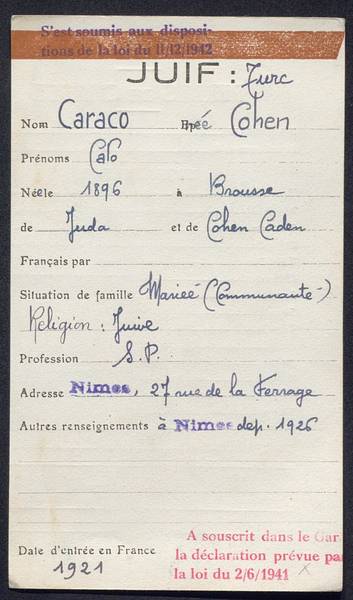 S'est soumis aux disposi-
tions de la loi du 11/12/1942
JUIF : Turc
Nom Caraco née Cohen
Prénoms Calo
Née le 1896 à Brousse
de Juda et de Cohen Caden
Français par
Situation de famille Mariée (Communauté)
Religion : Juive
Profession S.P.
Adresse Nimes, 27 rue de la Ferrage
Autres renseignements à Nimes dep. 1926
A souscrit dans le Gar
la déclaration prévue pa
la loi du 2/6/1941
Date d'entrée en France
1921